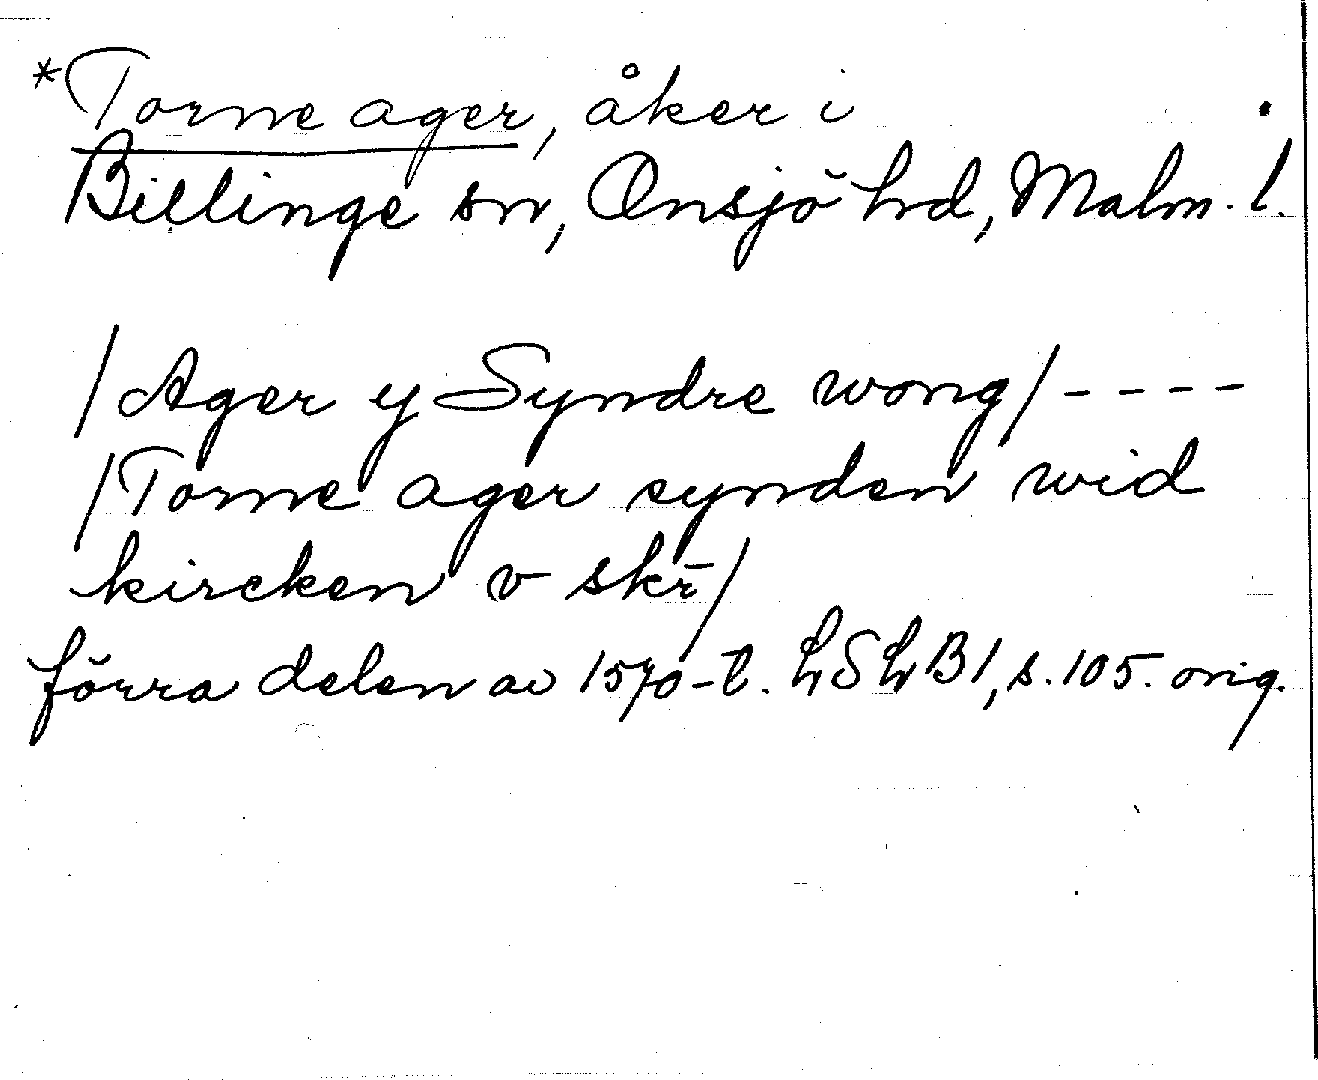 *Torne ager, åker i
Billinge sn, Onsjö hd, Malm. l.
/Ager y Syndre wong/ - - - -
/Torne ager synden wid
kircken v skr̄/
förra delen av 1570-t. LSLB1, s. 105. orig.